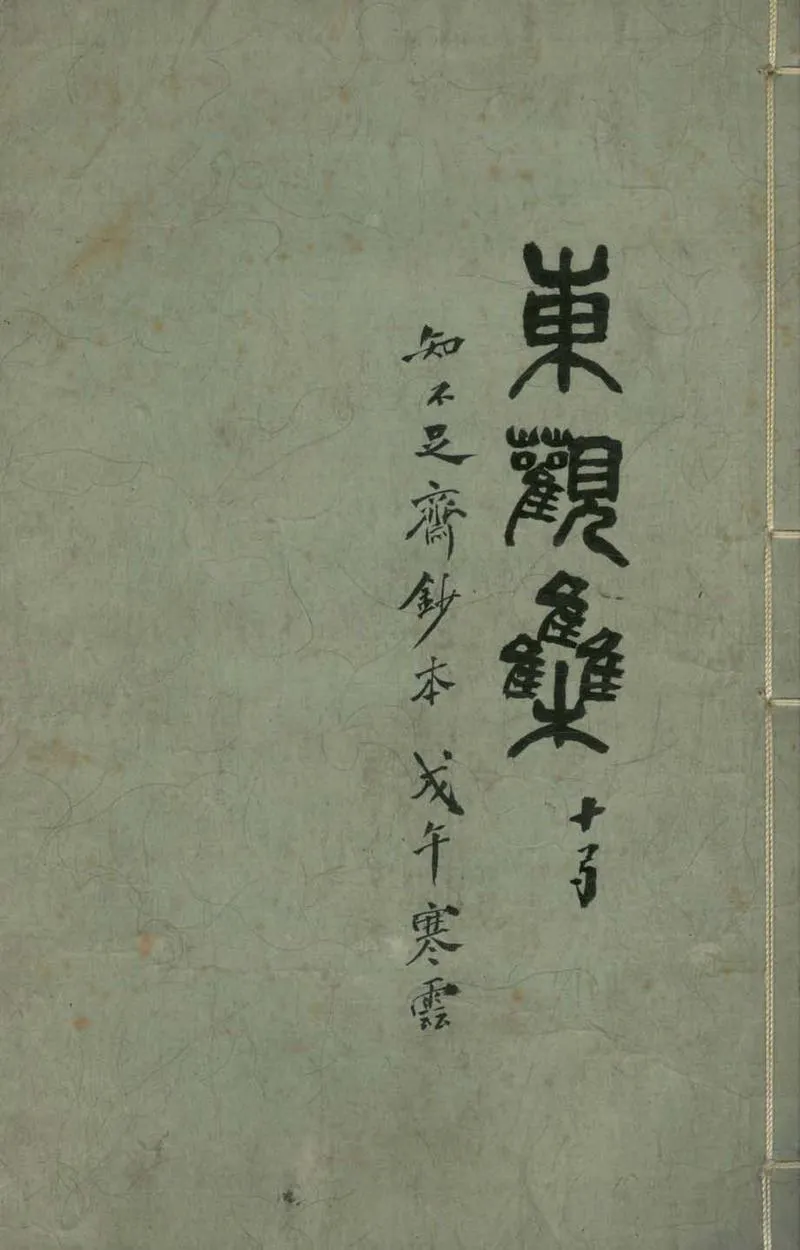 東觀集十弓
知不足齋鈔本 戊午寒雲